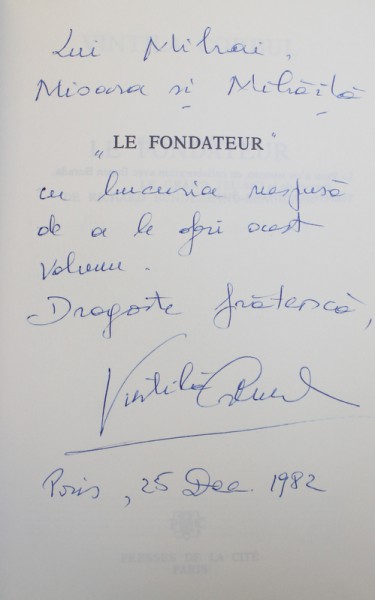 Lui Mihai,
Mioara și Mihăiță
„LE FONDATEUR"
cu bucuria nespusă
de a le oferi acest
volum.
Dragoste frățească,
Vintilă
Paris, 25 Dec. 1982
PRESSES DE LA CITÉ
PARIS